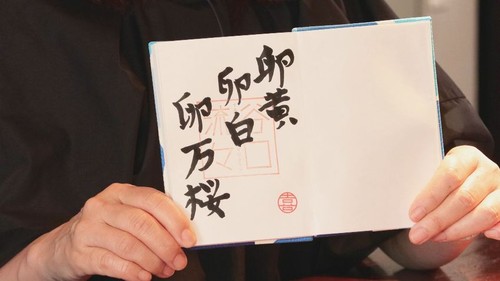 卵黄
卵白
卵万桜